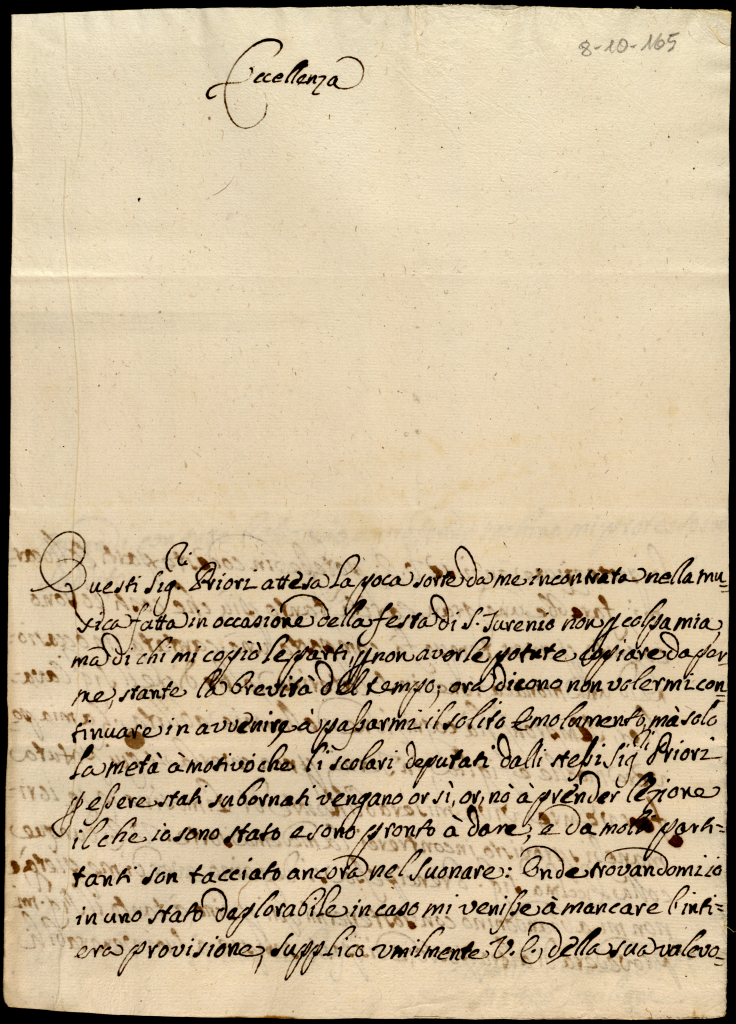 8-10-165
Eccellenza
Questi Sig.ri Priori attesa la poca sorte da me incontrata nella mu-
sica fatta in occasione della festa di S. Iuvenio non p colpa mia
mà di chi mi copiò le parti, p non averle potute copiare da per
me, stante la brevità del tempo, ora dicono non volermi con
tinuare in avvenire à passarmi il solito Emolumento, mà solo
la metà à motivo che li scolari deputati dalli stessi Sig.ri Priori
p essere stati subornati vengano or sì, or, nò à prender lezione
il che io sono stato e sono pronto à dare, e da molti parti=
tanti son tacciato ancora nel suonare: Onde trovandomi io
in uno stato deplorabile in caso mi venisse à mancare l'inti=
era provisione, supplico umilmente V. E. della sua valevo-